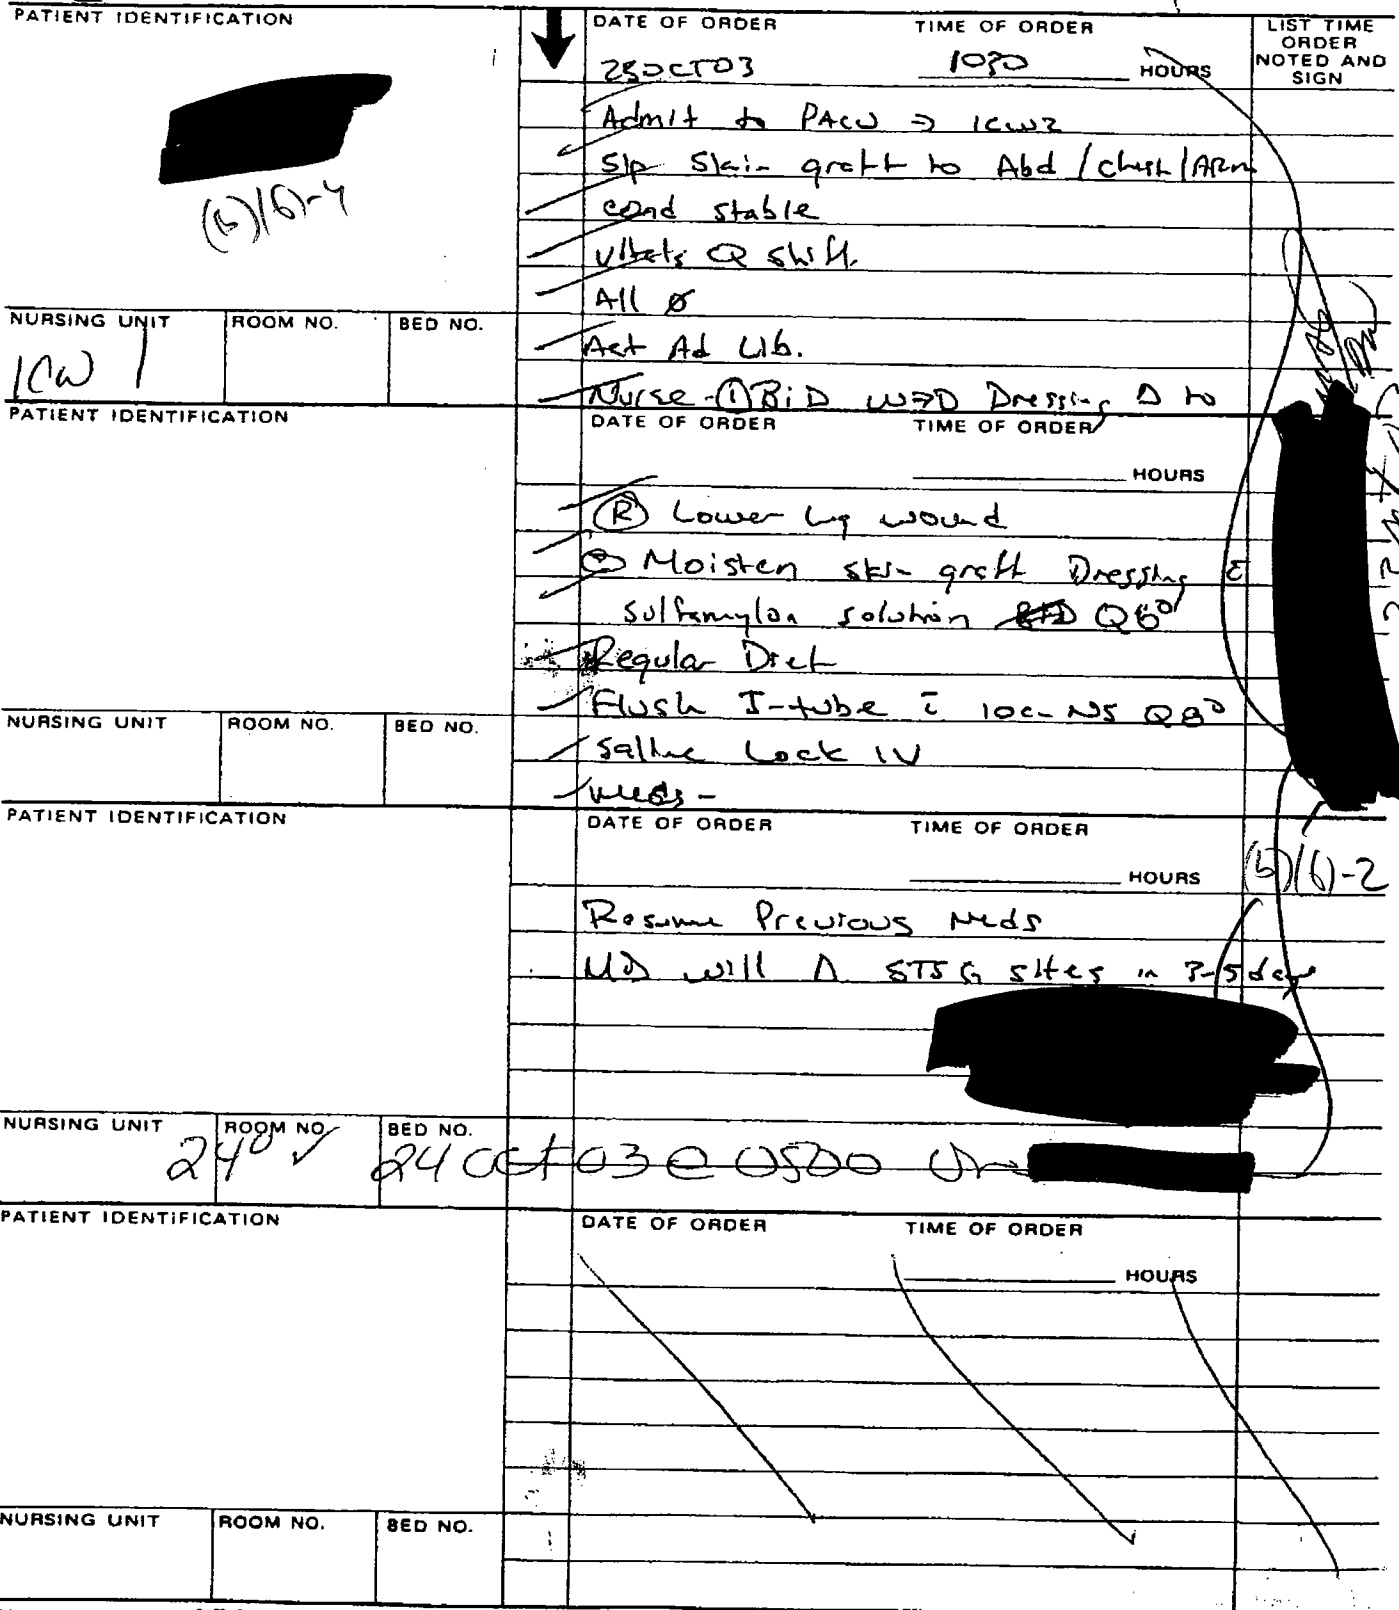 PATIENT IDENTIFICATION
DATE OF ORDER TIME OF ORDER
LIST TIME ORDER NOTED AND SIGN
23OCT03 1030 HOURS
(b)(6)-4
Admit to PACU → ICW2
S/p Skin graft to Abd / Chest / ARm
cond stable
Vitals Q shift.
All ø
Act Ad Lib.
NURSING UNIT ROOM NO. BED NO.
ICW 1
Nurse - ① BiD W→D Dressing Δ to
PATIENT IDENTIFICATION
DATE OF ORDER TIME OF ORDER
HOURS
Ⓡ Lower Leg wound
② Moisten skin graft Dressing c̄
Sulfamylon solution Q6°
Regular Diet
Flush J-tube c̄ 10cc NS Q8°
Saline Lock IV
Meds -
NURSING UNIT ROOM NO. BED NO.
PATIENT IDENTIFICATION
DATE OF ORDER TIME OF ORDER
HOURS
(b)(6)-2
Resume Previous Meds
MD will Δ STSG sites in 3-5 days
NURSING UNIT ROOM NO. BED NO.
24° ✓ 24 Oct 03 @ 0500
PATIENT IDENTIFICATION
DATE OF ORDER TIME OF ORDER
HOURS
NURSING UNIT ROOM NO. BED NO.